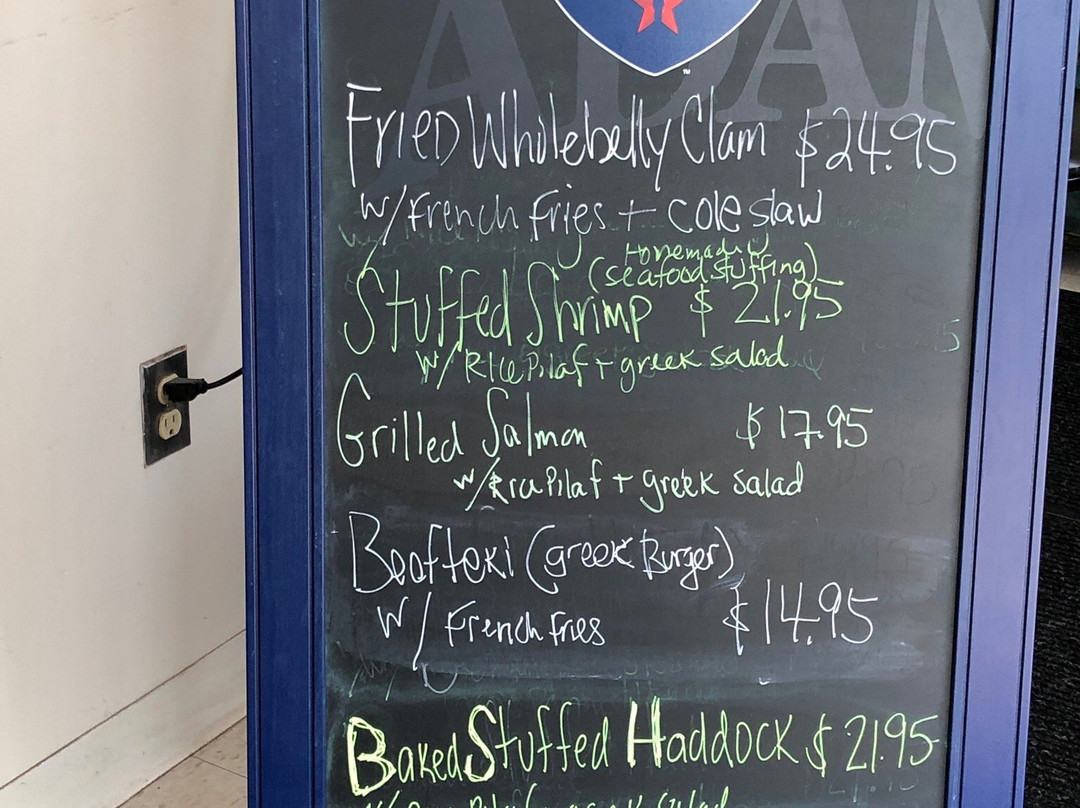 ADAM
Fried Wholebelly Clam $24.95
w/French Fries + cole slaw
Homemade
(seafood stuffing)
Stuffed Shrimp $ 21.95
w/Rice Pilaf + greek salad
Grilled Salmon $17.95
w/Rice Pilaf + greek salad
Beefteki (greek Burger)
w/ French Fries $14.95
Baked Stuffed Haddock $ 21.95